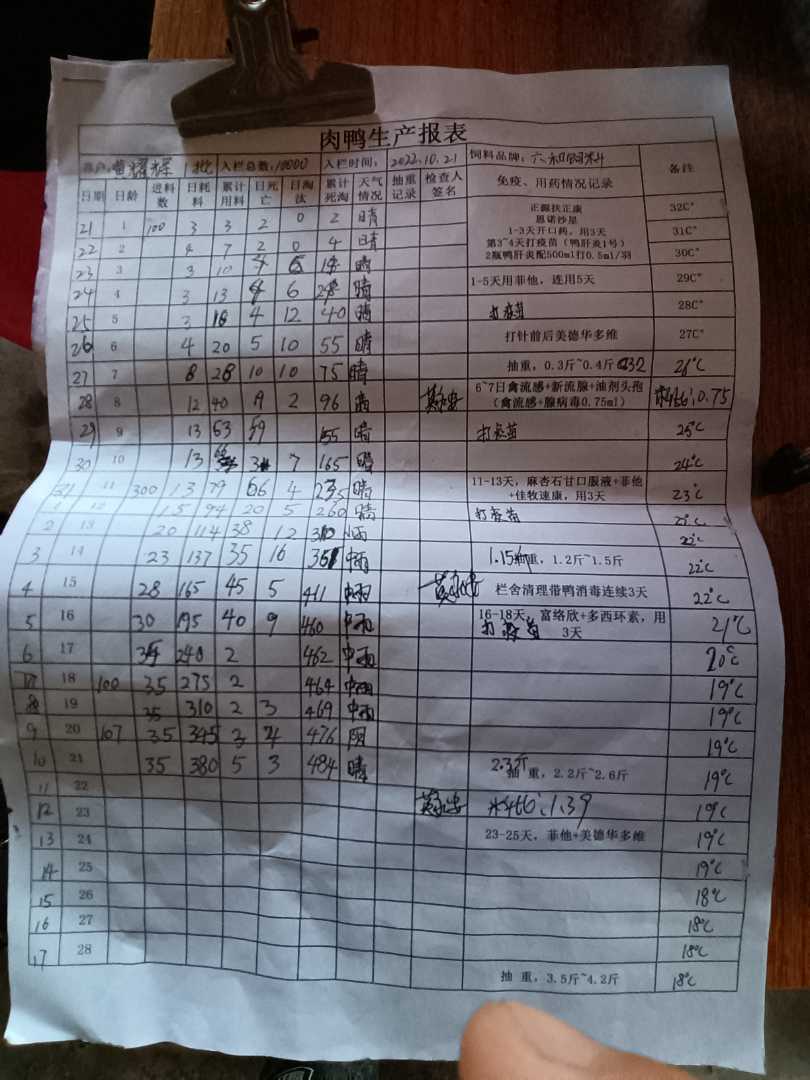 肉鸭生产报表
养户:黄耀辉 1批 入栏总数:10000 入栏时间: 2022.10.21 饲料品牌:六和饲料 备注
日期 日龄 进料数 日耗料 累计用料 日死亡 日淘汰 累计死淘 天气情况 抽重记录 检查人签名 免疫、用药情况记录
21 1 100 3 3 2 0 2 晴 正源扶正康 32C°
恩诺沙星
22 2 4 7 2 0 4 晴 1-3天开口药,用3天 31C°
第3~4天打疫苗(鸭肝炎1号)
23 3 3 10 晴 2瓶鸭肝炎配500ml打0.5ml/羽 30C°
24 4 3 13 6 晴 1-5天用菲他,连用5天 29C°
25 5 3 16 4 12 40 晴 打疫苗 28C°
26 6 4 20 5 10 55 晴 打针前后美德华多维 27C°
27 7 8 28 10 10 75 晴 抽重,0.3斤~0.4斤 21℃
28 8 12 40 2 96 6~7日禽流感+新流腺+油剂头孢 0.75
(禽流感+腺病毒0.75ml)
29 9 13 63 59 155 晴 打疫苗 25℃
30 10 13 7 165 晴 24℃
31 11 300 13 79 66 4 235 晴 11-13天,麻杏石甘口服液+菲他 23℃
+佳牧速康,用3天
1 12 15 94 20 5 260 晴 打疫苗 22℃
2 13 20 114 38 12 310 小雨 22℃
3 14 23 137 35 16 361 中雨 1.15 抽重,1.2斤~1.5斤 22℃
4 15 28 165 45 5 411 中雨 栏舍清理带鸭消毒连续3天 22℃
5 16 30 195 40 9 460 中雨 16-18天,富络欣+多西环素,用 21℃
打疫苗 3天
6 17 240 2 462 中雨 20℃
18 100 35 275 2 464 中雨 19℃
8 19 35 310 2 3 469 中雨 19℃
9 20 107 35 345 3 4 476 阴 19℃
10 21 35 380 5 3 484 晴 2.3斤 19℃
抽重,2.2斤~2.6斤
11 22
12 23 料比:1.39 19℃
13 24 23-25天,菲他+美德华多维 19℃
14 25 19℃
15 26 18℃
16 27 18℃
17 28 18℃
抽 重,3.5斤~4.2斤 18℃